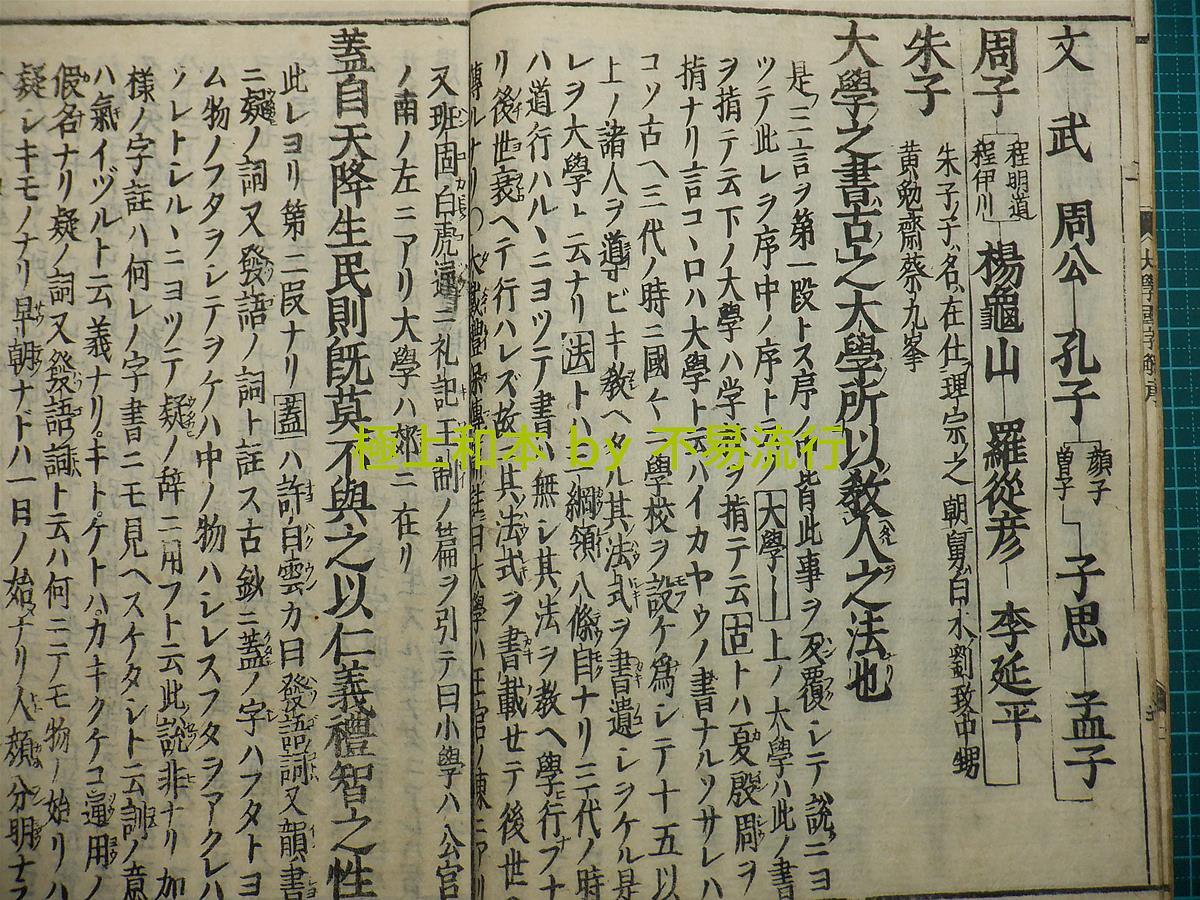 文 武 周公 孔子 顔子 曽子 子思 孟子
周子 程明道 程伊川 楊龜山 羅從彦 李延平
朱子 朱子ノ子名ハ在仕理宗之朝
黄勉齋蔡九峯
大學之書古之大學所以教人之法也
是ノ三言ヲ第一段トス序ノ皆此事ヲ反覆シテ説ニヨ
ツテ此レヲ序中ノ序ト云ノ大學ー上ノ大學ハ此ノ書
ヲ指テ云下ノ大學ハ学ヲ指テ云古トハ夏殷周ヲ
指ナリ言コヽロハ大學ト云ハイカヤウノ書ナルソサレハ
コソ古ヘ三代ノ時ニ國々ニ學校ヲ設ケ爲シテ十五以
上ノ諸人ヲ導ビキ教ヘタル其法式ヲ書遺シヲケル是
レヲ大學ト云ナリ法トハ綱領八條目ナリ三代ノ時
ハ道行ハルヽニヨツテ書ハ無シ其法ヲ教ヘ學行フナ
リ後世衰ヘテ行ハレズ故ニ其法式ヲ書載セテ後世
傳ルナリ
又班固白虎通ニ礼記王制ノ篇ヲ引テ曰小學ハ公宮
ノ南ノ左ニアリ大學ハ郊ニ在リ
蓋自天降生民則既莫不與之以仁義禮智之性
此レヨリ第二段ナリ蓋ハ許白雲カ曰發語詞又韻書
ニ疑ノ詞又發語ノ詞ト註ス古鈔ニ蓋ノ字ハフタトヨ
ム物ノフタヲシテヲケハ中ノ物ハシレスフタヲアクレハ
ソレトシルヽニヨツテ疑ノ辞ニ用フト云此説非ナリ加
様ノ字註ハ何レノ字書ニモ見ヘス
ハ氣イヅルト云義ナリ
假名ナリ疑ノ詞又發語詞ト云ハ何ニテモ物ノ始リハ
疑シキモノナリ早朝ナドハ一日ノ始ナリ人顔分明ナラ
極上和本 by 不易流行